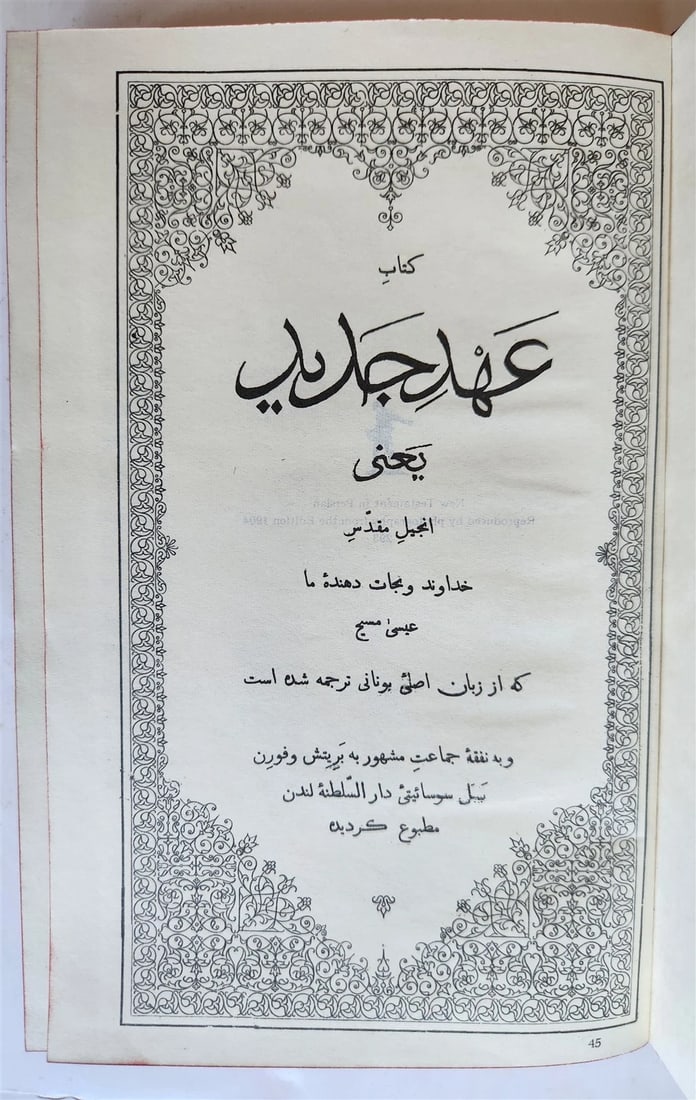 کتابِ
عَهْدِ جَدید
یَعنی
انجیلِ مقدّسِ
خداوند و نجات دهندهٔ ما
عیسیٰ مسیح
که از زبان اصلئ یونانی ترجمه شده است
و به نفقهٔ جماعتِ مشهور به بَرِیتِش وفورِن
بَیبَل سوسائیتئ دار السّلطنهٔ لندن
مطبوع گردیده
New Testament in Persian
Reproduced by photography from the Edition 1904
293
45